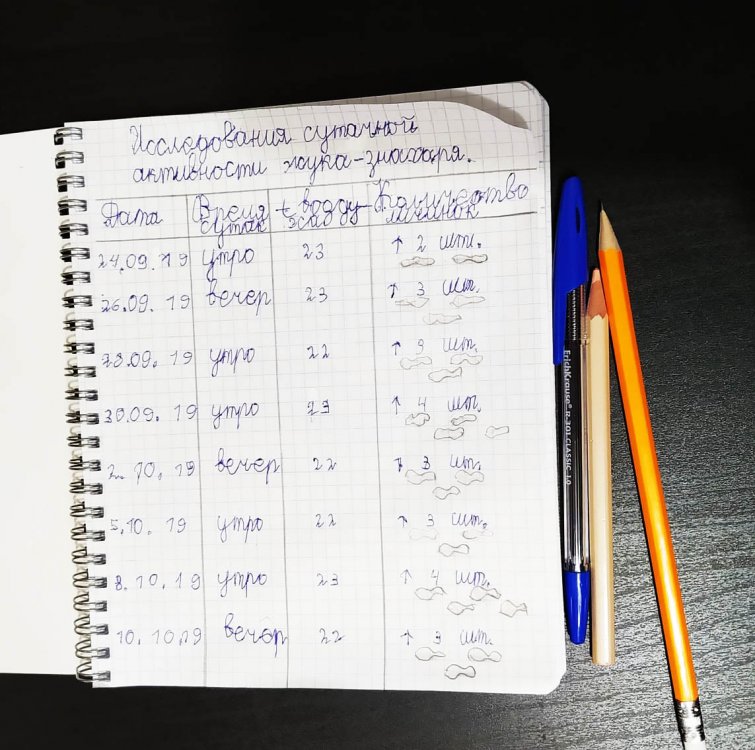 Исследования суточной
активности жука-знахаря.
Дата Время суток t Количество личинок
24.09.19 утро 23 ↑ 2 шт.
26.09.19 вечер 23 ↑ 3 шт.
28.09.19 утро 22 ↑ шт.
30.09.19 утро 23 ↑ 4 шт.
2.10.19 вечер 22 ↑ 3 шт.
5.10.19 утро 22 ↑ 3 шт.
8.10.19 утро 23 ↑ 4 шт.
10.10.19 вечер 22 ↑ 3 шт.
ErichKrause® R-301 CLASSIC 1.0